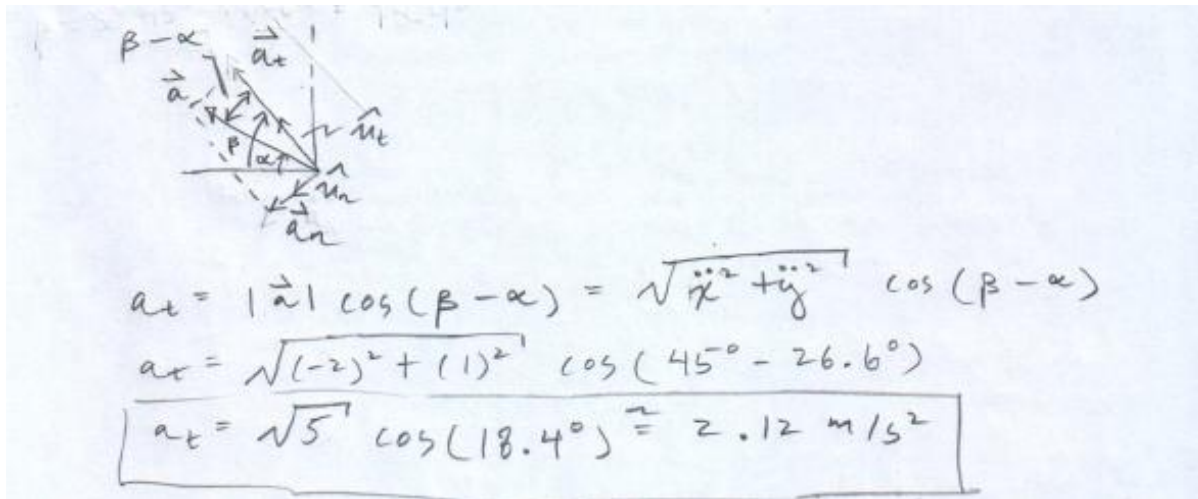 β - α
a⃗t
a⃗
β
α
ût
ûn
a⃗n
at = |a⃗| cos(β - α) = √(ẍ² + ÿ²) cos(β - α)
at = √((-2)² + (1)²) cos(45° - 26.6°)
at = √5 cos(18.4°) ≅ 2.12 m/s²